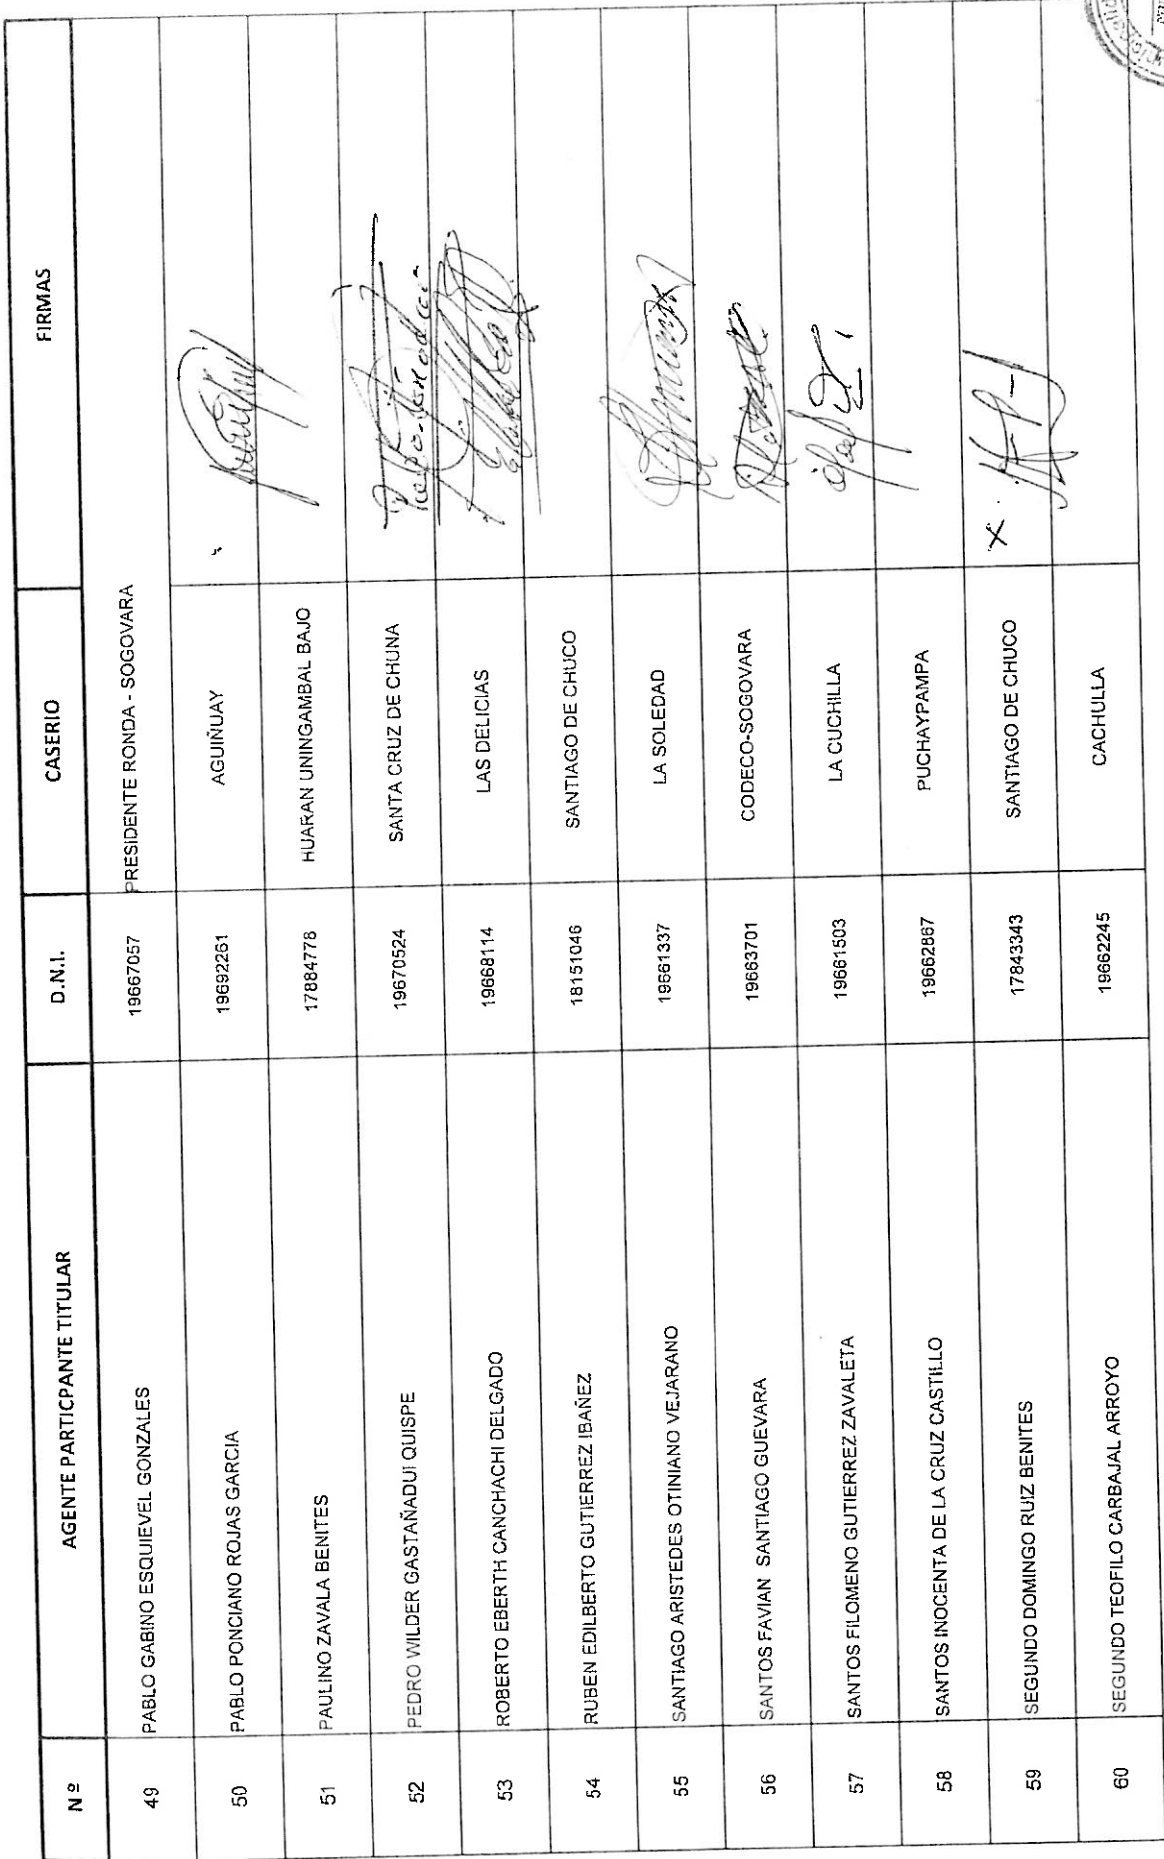 Nº AGENTE PARTICPANTE TITULAR D.N.I. CASERIO FIRMAS
49 PABLO GABINO ESQUIEVEL GONZALES 19667057 PRESIDENTE RONDA - SOGOVARA
50 PABLO PONCIANO ROJAS GARCIA 19692261 AGUIÑUAY
51 PAULINO ZAVALA BENITES 17884778 HUARAN UNINGAMBAL BAJO
52 PEDRO WILDER GASTAÑADUI QUISPE 19670524 SANTA CRUZ DE CHUNA
53 ROBERTO EBERTH CANCHACHI DELGADO 19668114 LAS DELICIAS
54 RUBEN EDILBERTO GUTIERREZ IBAÑEZ 18151046 SANTIAGO DE CHUCO
55 SANTIAGO ARISTEDES OTINIANO VEJARANO 19661337 LA SOLEDAD
56 SANTOS FAVIAN SANTIAGO GUEVARA 19663701 CODECO-SOGOVARA
57 SANTOS FILOMENO GUTIERREZ ZAVALETA 19661503 LA CUCHILLA
58 SANTOS INOCENTA DE LA CRUZ CASTILLO 19662867 PUCHAYPAMPA
59 SEGUNDO DOMINGO RUIZ BENITES 17843343 SANTIAGO DE CHUCO X
60 SEGUNDO TEOFILO CARBAJAL ARROYO 19662245 CACHULLA